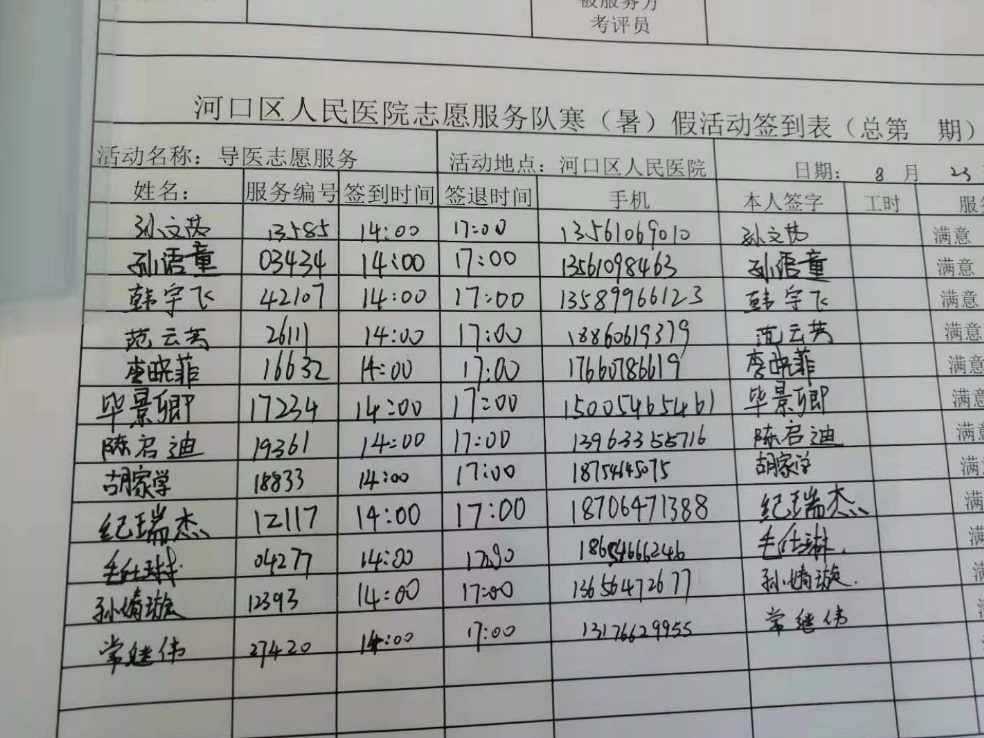 被服务方
考评员
河口区人民医院志愿服务队寒（暑）假活动签到表（总第 期）
活动名称：导医志愿服务 活动地点：河口区人民医院 日期： 8 月 23
姓名： 服务编号 签到时间 签退时间 手机 本人签字 工时 服
孙文苒 13585 14:00 17:00 13561069010 孙文苒 满意
孙语童 03434 14:00 17:00 13561098463 孙语童 满意
韩宇飞 42107 14:00 17:00 13589966123 韩宇飞 满意
范云芮 26111 14:00 17:00 18860619379 范云芮 满意
李晓菲 16632 14:00 17:00 17660786619 李晓菲 满意
毕景卿 17234 14:00 17:00 15005465461 毕景卿 满意
陈启迪 19361 14:00 17:00 13963355716 陈启迪 满
胡家学 18833 14:00 17:00 18754645075 胡家学 满
纪瑞杰 12117 14:00 17:00 18706471388 纪瑞杰 满
毛仕琳 04277 14:00 17:00 毛仕琳 满
孙婧璇 12393 14:00 17:00 13656472677 孙婧璇 满
常继伟 27420 14:00 17:00 13176629955 常继伟